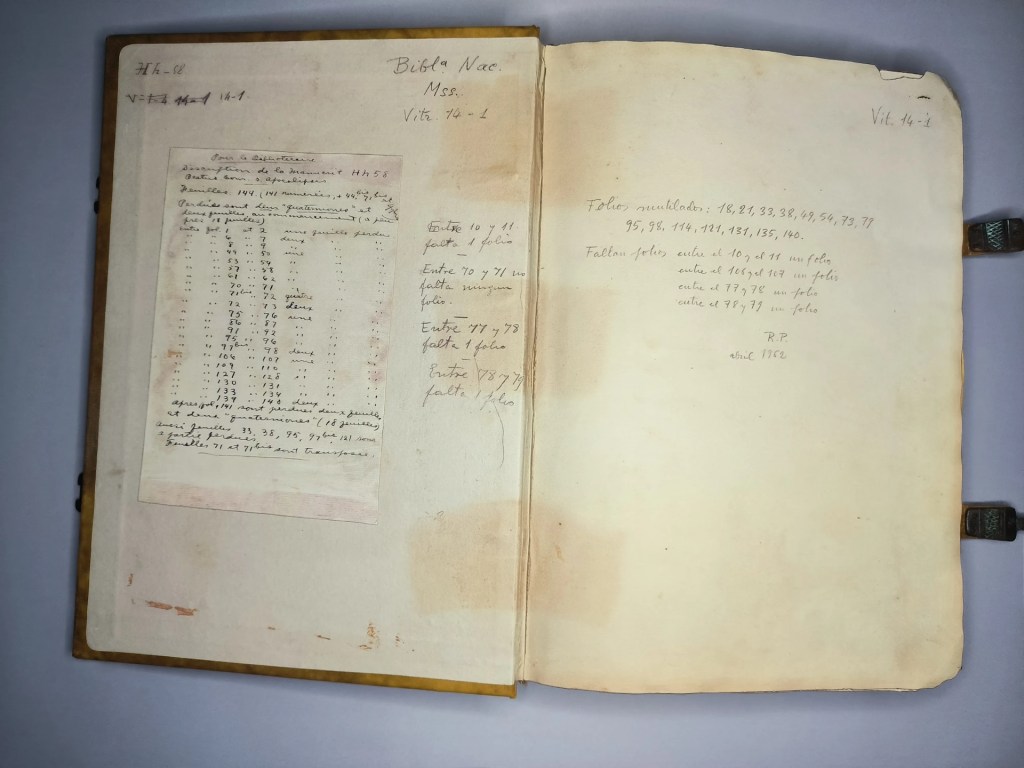 Hh-58
14-1 14-1.
Bibl.ª Nac.
Mss.
Vitr. 14-1
Pour la Bibliothécaire
Description de la Manuscrit Hh58
Beatus Com. s. Apocalipsis
Feuilles 144. (141 numerées, + 44 bis, 71 bis et
Perdues sont deux "quaterniones" et
deux feuilles, au commencement (a peu
près 18 feuilles)
entre fol 1 at 2 une feuille perdue
" " 6 " 7 deux " "
" " 8 " 9 " "
" " 49 " 50 une " "
" " 53 " 54 " " "
" " 57 " 58 " " "
" " 61 " 62 " " "
" " 70 " 71 " " "
" " 71 bis " 72 quatre " "
" " 72 " 73 deux " "
" " 75 " 76 une " "
" " 86 " 87 " " "
" " 91 " 92 " " "
" " 95 " 96 " " "
" " 97 bis " 98 deux " "
" " 106 " 107 une " "
" " 109 " 110 " " "
" " 127 " 128 " " "
" " 130 " 131 " " "
" " 133 " 134 " " "
" " 139 " 140 deux " "
Apres fol. 141 sont perdues deux feuilles
et deux "quaterniones" (18 feuilles)
Aussi feuilles 33, 38, 95, 97 bis, 121 sont
a partie perdues.
Feuilles 71 at 71 bis sont transposée.
Entre 10 y 11.
falta 1 folio
Entre 70 y 71 no
falta ningun
folio.
Entre 77 y 78
falta 1 folio
Entre 78 y 79
falta 1 folio
Vit. 14-1
Folios mutilados: 18, 21, 33, 38, 49, 54, 73, 79
95, 98, 114, 121, 131, 135, 140.
Faltan folios entre el 10 y el 11 un folio
entre el 106 y el 107 un folio
entre el 77 y 78 un folio
entre el 78 y 79 un folio
R.P.
abril 1962